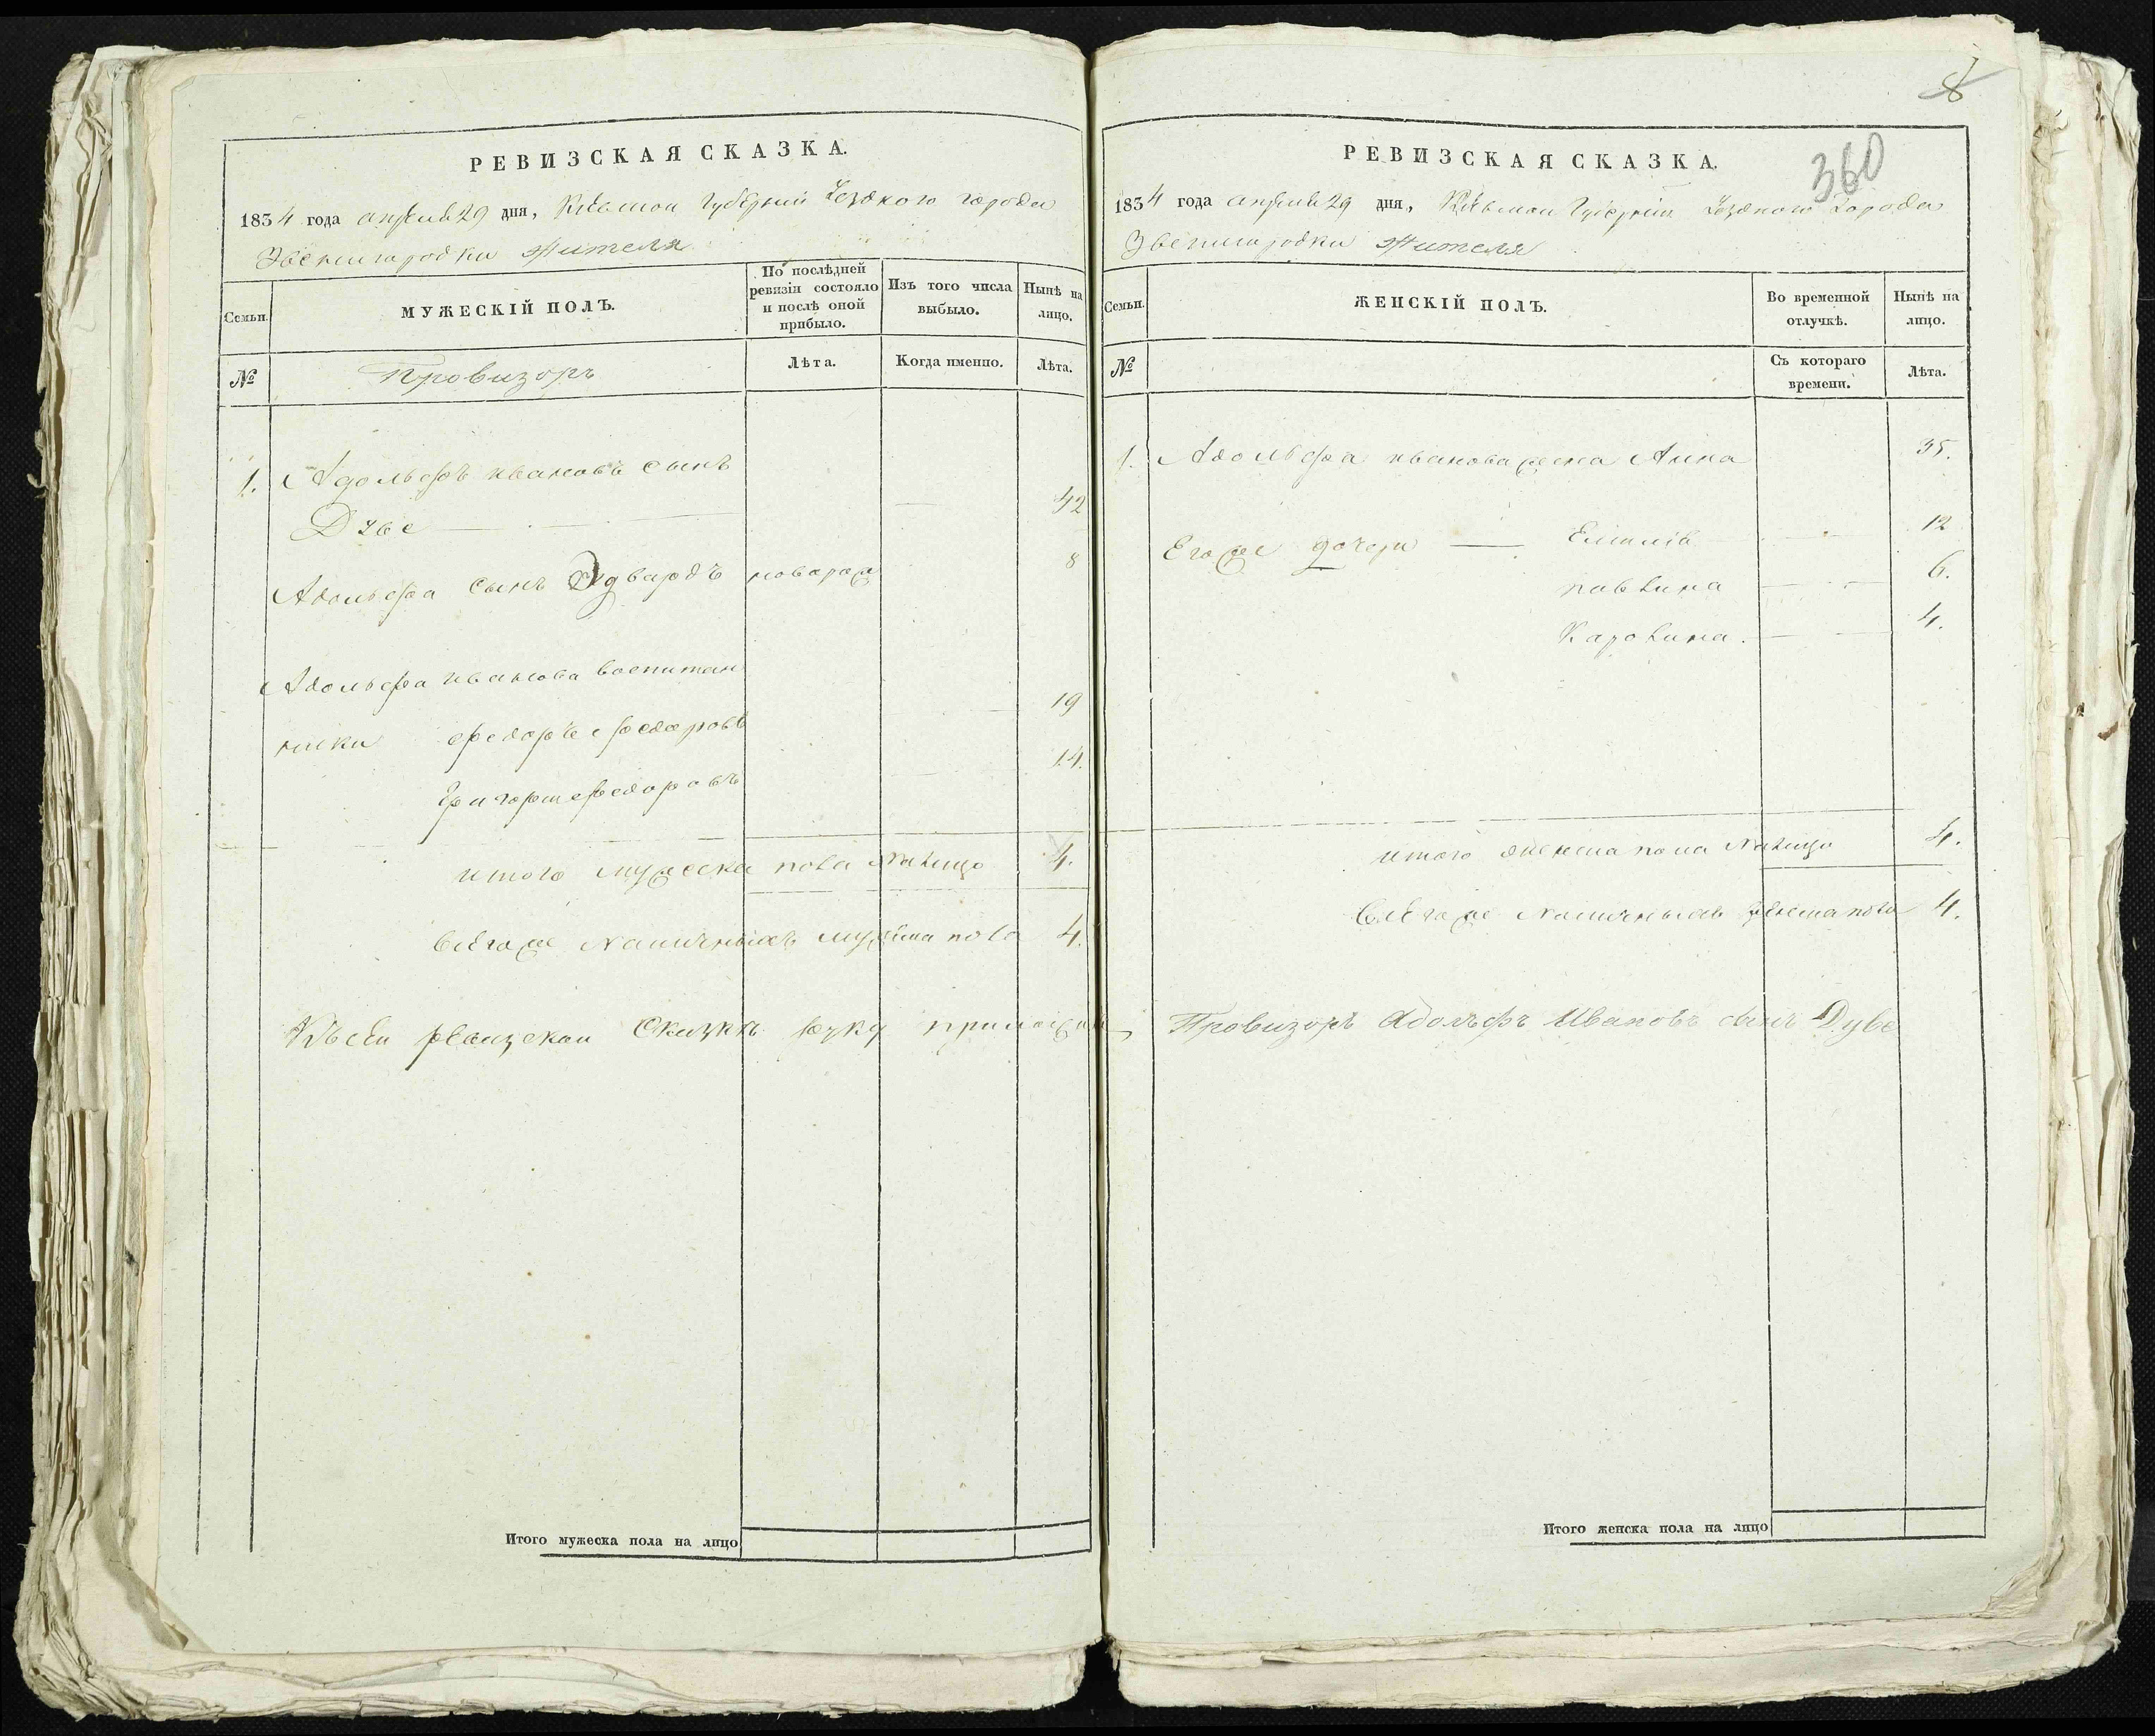 РЕВИЗСКАЯ СКАЗКА.
1834 года апреля 29 дня, Кіевской Губерніи Уездного города
Звенигородки Жителя
Семьи.
МУЖЕСКІЙ ПОЛЪ.
По послѣдней ревизіи состояло и послѣ оной прибыло.
Изъ того числа выбыло.
Нынѣ на лицо.
№
Провизоръ
Лѣта.
Когда именно.
Лѣта.
1. Адольфъ Ивановъ сынъ
Дубе 42
Адольфа сынъ Эдвардъ 8
Адольфа Иванова воспитан
ники Федоръ Федоровъ 19
Григорий Федоровъ 14.
итого мужеска пола налицо 4.
всего же наличныхъ мужеска пола 4.
Къ сей ревизской Сказкѣ руку приложилъ
8
360
РЕВИЗСКАЯ СКАЗКА.
1834 года апреля 29 дня, Кіевской Губерніи Уездного города
Звенигородки Жителя
Семьи.
ЖЕНСКІЙ ПОЛЪ.
Во временной отлучкѣ.
Нынѣ на лицо.
№
Съ котораго времени.
Лѣта.
1. Адольфа Иванова жена Анна 35.
Его же дочери Емилія 12
Павлина 6.
Каролина. 4.
итого женска пола налицо 4.
всего же наличныхъ женска пола 4.
Провизоръ Адольфъ Ивановъ сынъ Дубе
Итого мужеска пола на лицо
Итого женска пола на лицо